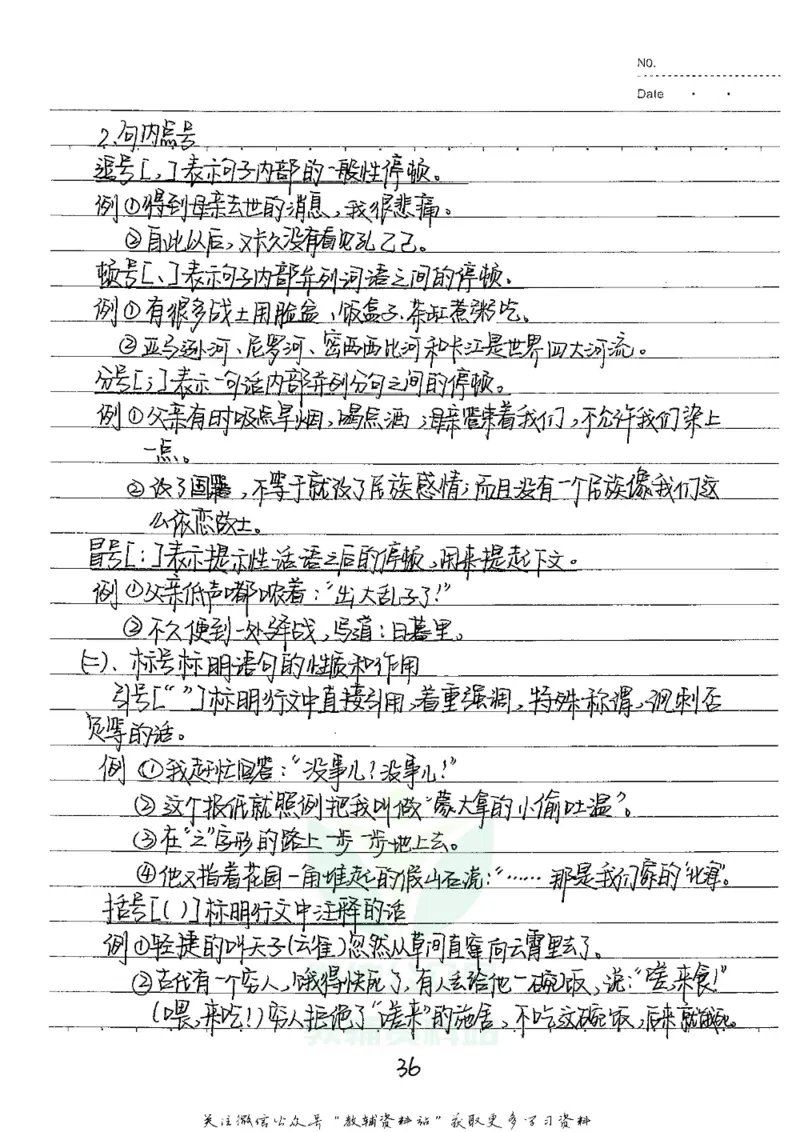 NO.
Date
2、句内点号
逗号[，]表示句子内部的一般性停顿。
例①得到母亲去世的消息，我很悲痛。
②自此以后，又长久没有看见孔乙己。
顿号[、]表示句子内部并列词语之间的停顿。
例①有很多战士用脸盆、饭盒子、茶缸煮粥吃。
②亚马逊河、尼罗河、密西西比河和长江是世界四大河流。
分号[；]表示一句话内部并列分句之间的停顿。
例①父亲有时吸点旱烟，喝点酒；母亲管束着我们，不允许我们染上
一点。
②改了国籍，不等于就改了民族感情；而且没有一个民族像我们这
么依恋故土。
冒号[：]表示提示性话语之后的停顿，用来提起下文。
例①父亲低声嘟哝着：“出大乱子了！”
②不久便到一处驿战，写道：日暮里。
(二)、标号标明语句的性质和作用
引号[“ ”]标明行文中直接引用，着重强调，特殊称谓，讽刺否
定等的话。
例 ①我赶忙回答：“没事儿！没事儿！”
②这个报纸就照例把我叫做“蒙大拿的小偷吐温”。
③在“之”字形的路上一步一步地上去。
④他又指着花园一角堆起的假山石说：“……那是我们家的‘北海’。
括号[( )]标明行文中注释的话
例①轻捷的叫天子(云雀)忽然从草间直窜向云霄里去了。
②古代有一个穷人，饿得快死了，有人丢给他一碗饭，说：“嗟，来食！”
(喂，来吃！)穷人拒绝了“嗟来”的施舍，不吃这碗饭，后来就饿死。
教辅资料站
36
关注微信公众号“教辅资料站”获取更多学习资料